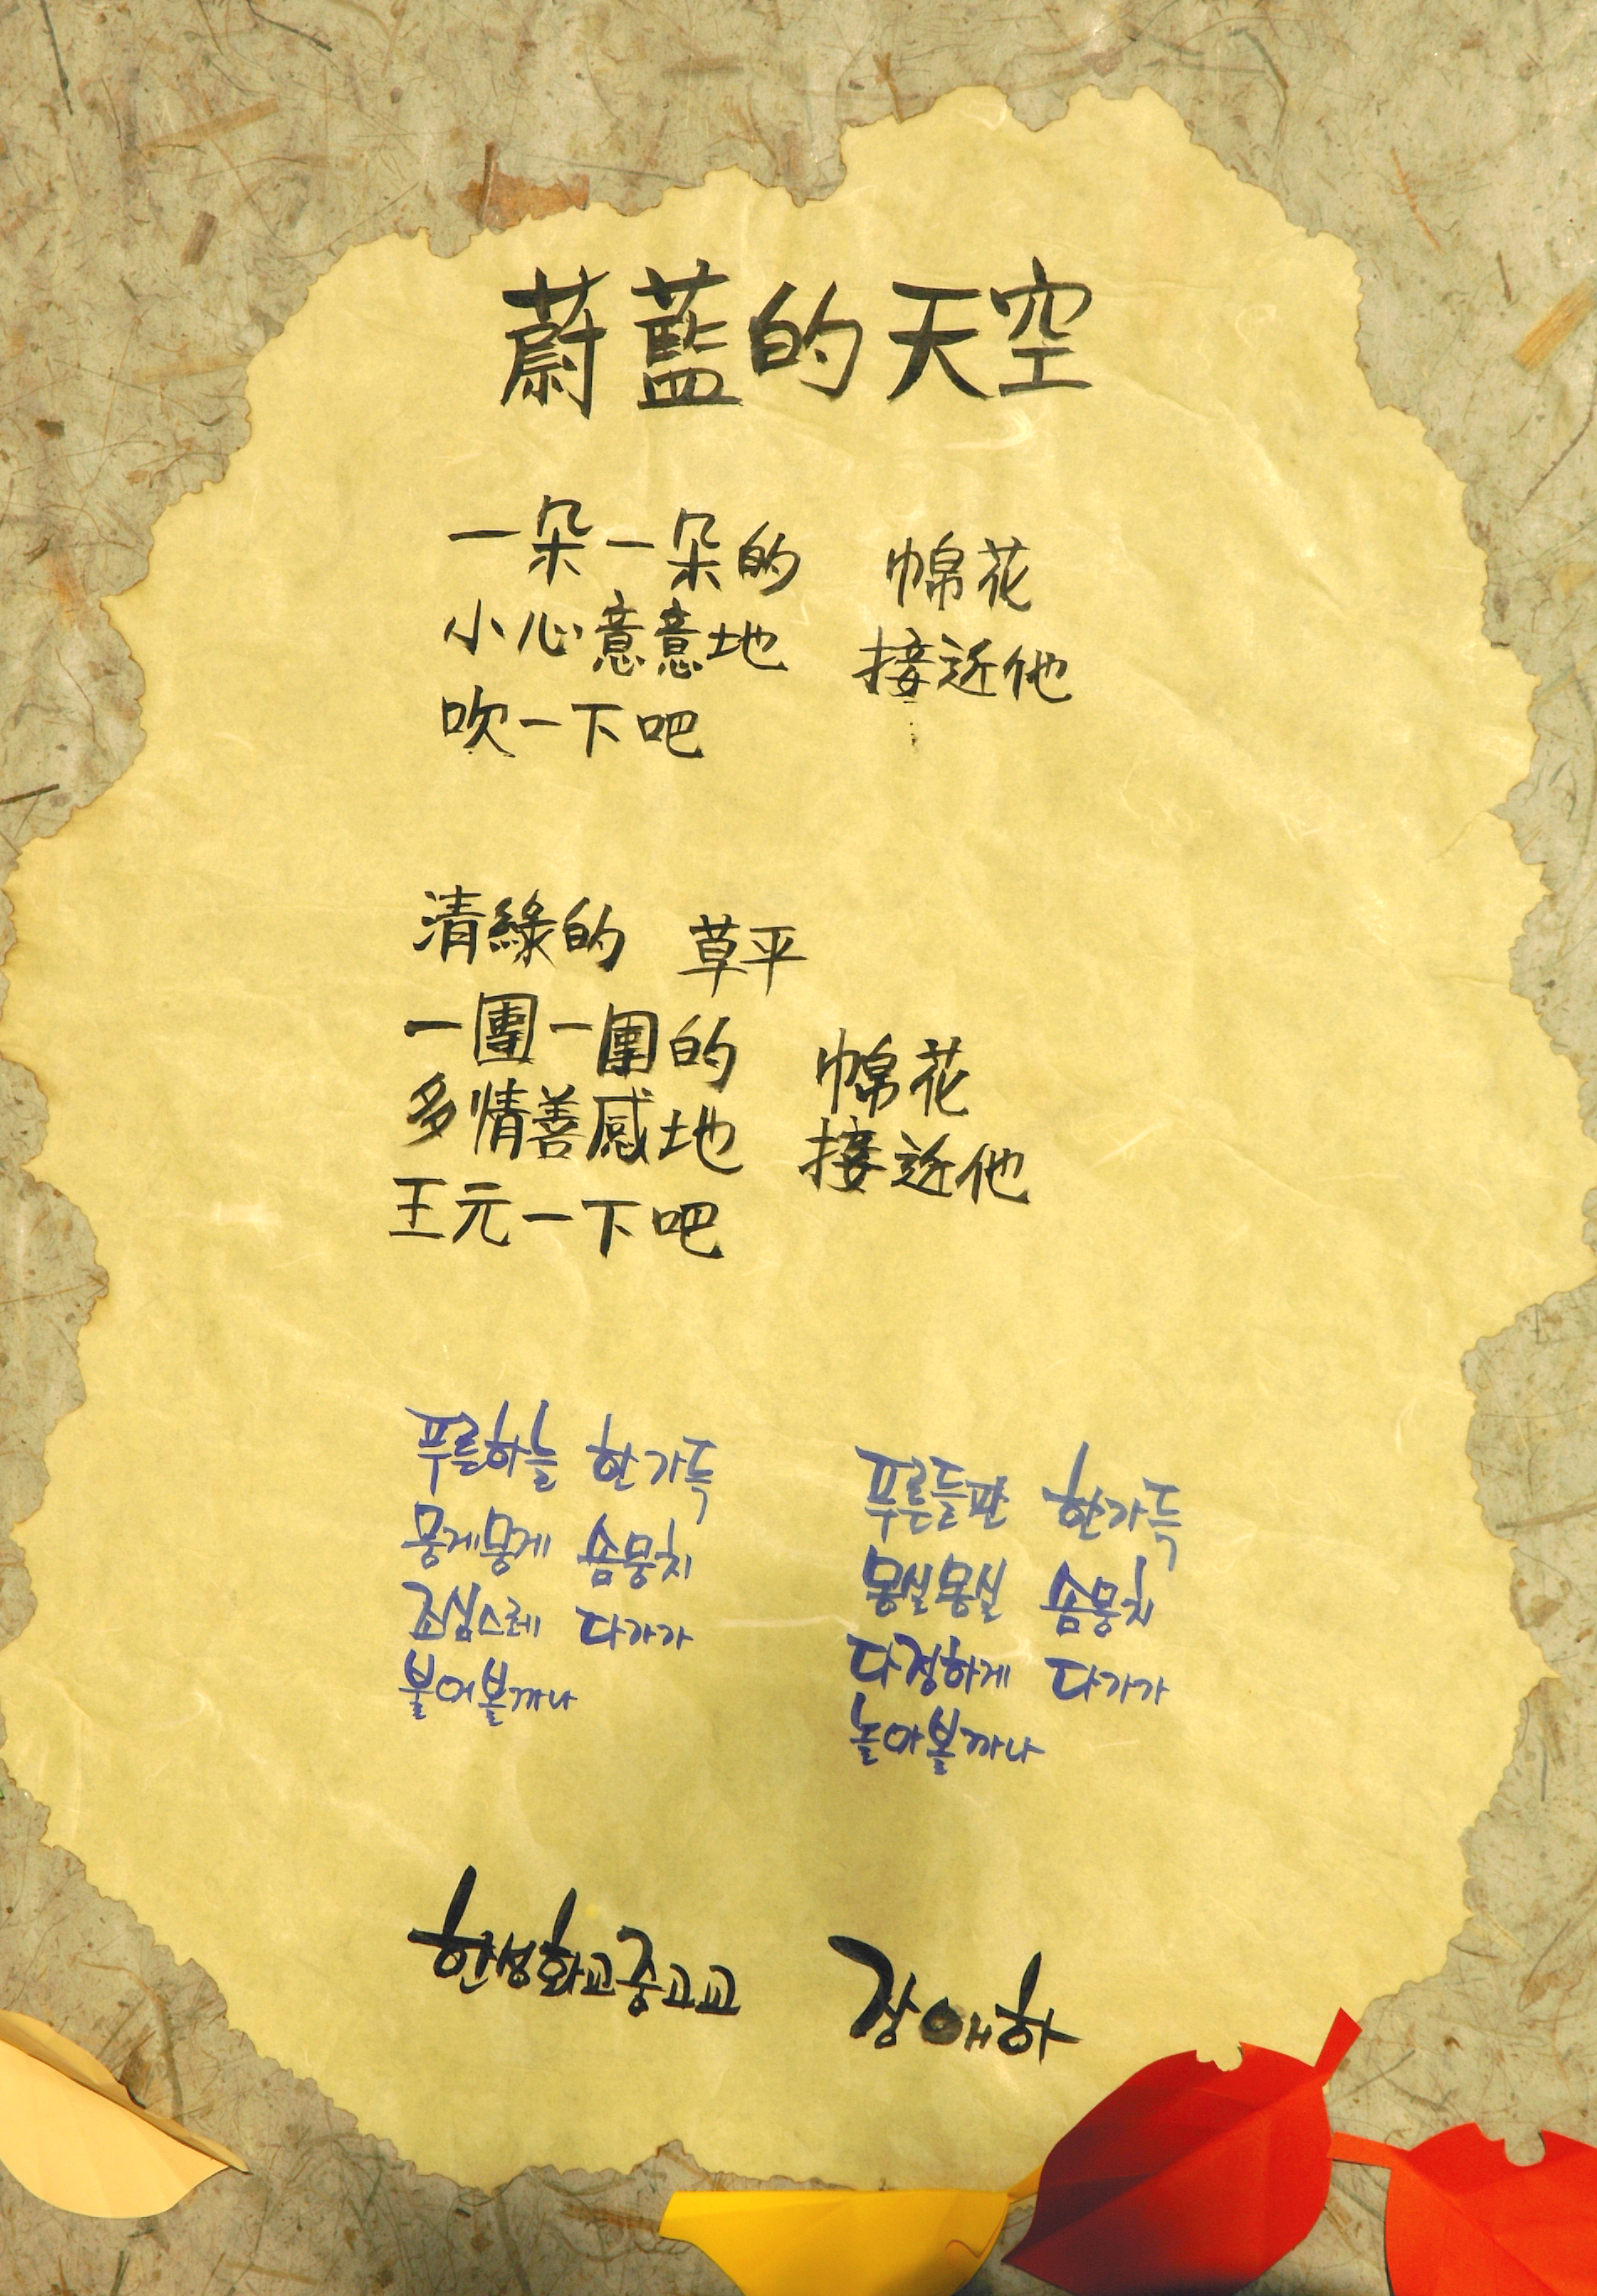 蔚藍的天空
一朵一朵的 棉花
小心意意地 接近他
吹一下吧
清綠的 草平
一團一團的 棉花
多情善感地 接近他
王元一下吧
푸른하늘 한가득
뭉게뭉게 솜뭉치
조심스레 다가가
불어볼까나
푸른들판 한가득
몽실몽실 솜뭉치
다정하게 다가가
놀아볼까나
한성화교중고교 장애하